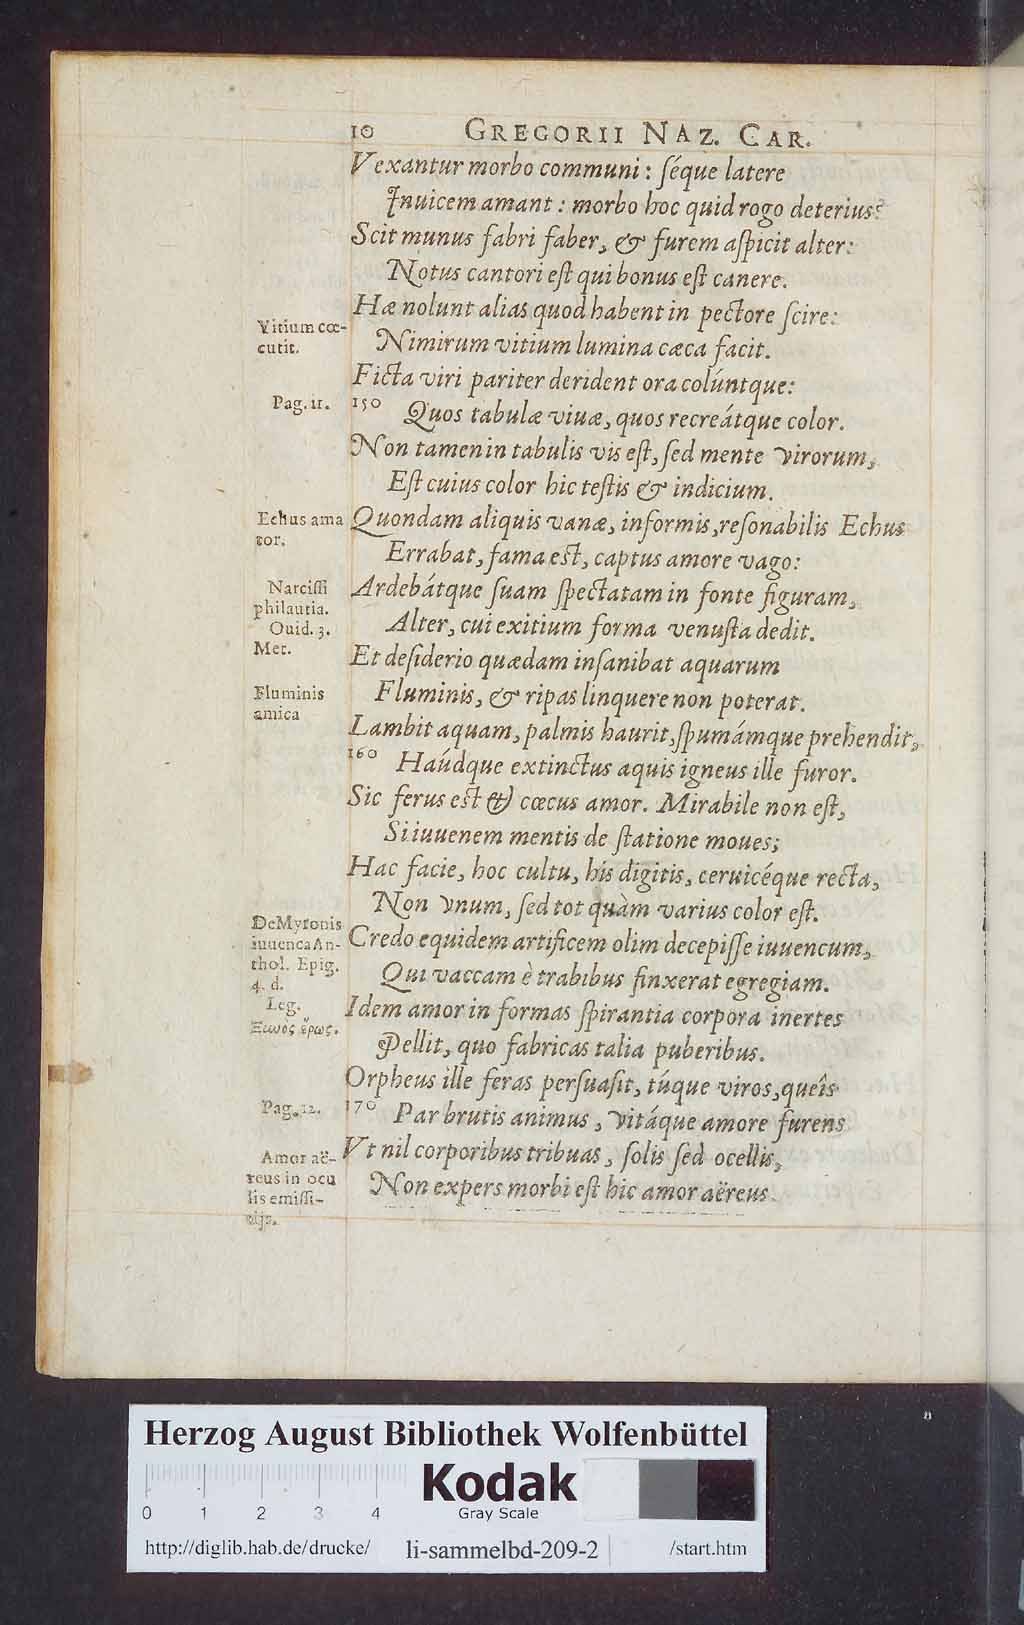 10 GREGORII NAZ. CAR.
Vexantur morbo communi : séque latere
Inuicem amant : morbo hoc quid rogo deterius?
Scit munus fabri faber, & furem aſpicit alter:
Notus cantori eſt qui bonus eſt canere.
Hæ nolunt alias quod habent in pectore ſcire:
Vitium cœ-
cutit.
Nimirum vitium lumina cæca facit.
Ficta viri pariter derident ora colúntque:
Pag. 11.
150 Quos tabulæ viuæ, quos recreátque color.
Non tamen in tabulis vis eſt, ſed mente virorum,
Eſt cuius color hic teſtis & indicium.
Echus ama
tor.
Quondam aliquis vanæ, informis, reſonabilis Echus
Errabat, fama eſt, captus amore vago:
Narciſſi
philautia.
Ouid. 3.
Met.
Ardebátque ſuam ſpectatam in fonte figuram,
Alter, cui exitium forma venuſta dedit.
Et deſiderio quædam inſanibat aquarum
Fluminis
amica
Fluminis, & ripas linquere non poterat.
Lambit aquam, palmis haurit, ſpumámque prehendit,
160 Haúdque extinctus aquis igneus ille furor.
Sic ferus eſt & cœcus amor. Mirabile non eſt,
Si iuuenem mentis de ſtatione moues;
Hac facie, hoc cultu, his digitis, ceruicéque recta,
Non vnum, ſed tot quàm varius color eſt.
De Myronis
iuuenca An-
thol. Epig.
4. d.
Credo equidem artificem olim decepiſſe iuuencum,
Qui vaccam è trabibus finxerat egregiam.
Leg.
Ξεινὸς ἔρως.
Idem amor in formas ſpirantia corpora inertes
Pellit, quo fabricas talia puberibus.
Orpheus ille feras perſuaſit, túque viros, queîs
Pag. 12.
170 Par brutis animus, vitáque amore furens
Amor aë-
reus in ocu
lis emiſſi-
tijs.
Vt nil corporibus tribuas, ſolis ſed ocellis,
Non expers morbi eſt hic amor aëreus.
Herzog August Bibliothek Wolfenbüttel
Kodak
Gray Scale
0 1 2 3 4
http://diglib.hab.de/drucke/ li-sammelbd-209-2 /start.htm